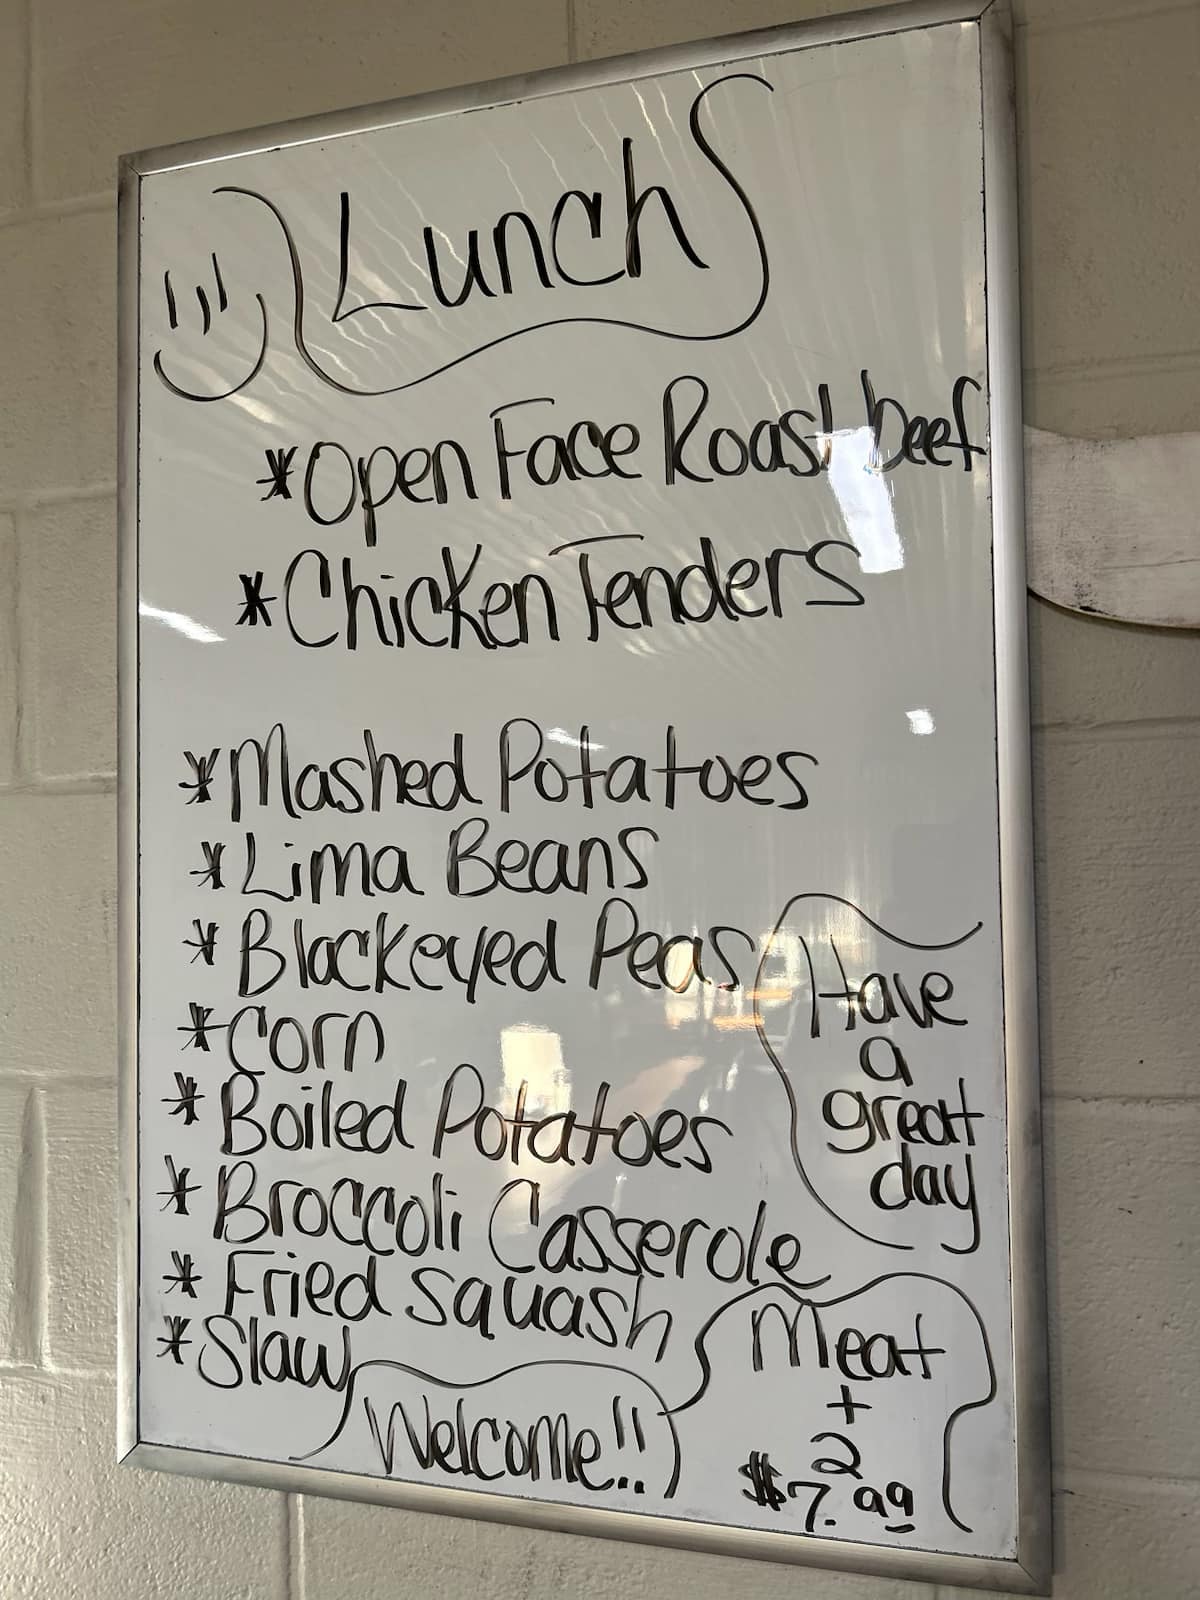 Lunch
*Open Face Roast beef
*Chicken Tenders
*Mashed Potatoes
*Lima Beans
*Blackeyed Peas
*Corn
*Boiled Potatoes
*Broccoli Casserole
*Fried squash
*Slaw
Have
a
great
day
Welcome!!
Meat
+
2
$7.99